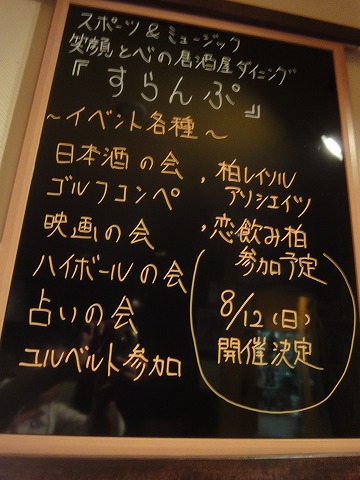 スポーツ&ミュージック
笑顔とべの居酒屋ダイニング
『すらんぷ』
～イベント各種～
日本酒の会
ゴルフコンペ
映画の会
ハイボールの会
占いの会
ユルベルト参加
・柏レイソル
アソシエイツ
・恋飲み柏
参加予定
8/12(日)
開催決定